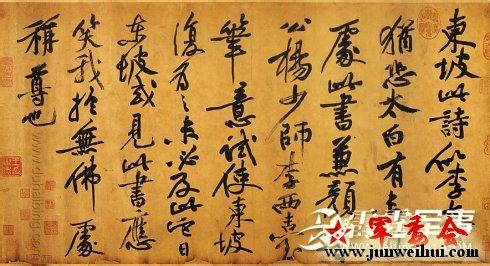 東坡此詩似李太
猶恐太白有未到
處此書兼顏魯
公楊少師李西臺
筆意試使東坡
復為之未必及此它日
東坡或見此書應
笑我於無佛處
稱尊也
军委会
www.junweihui.com